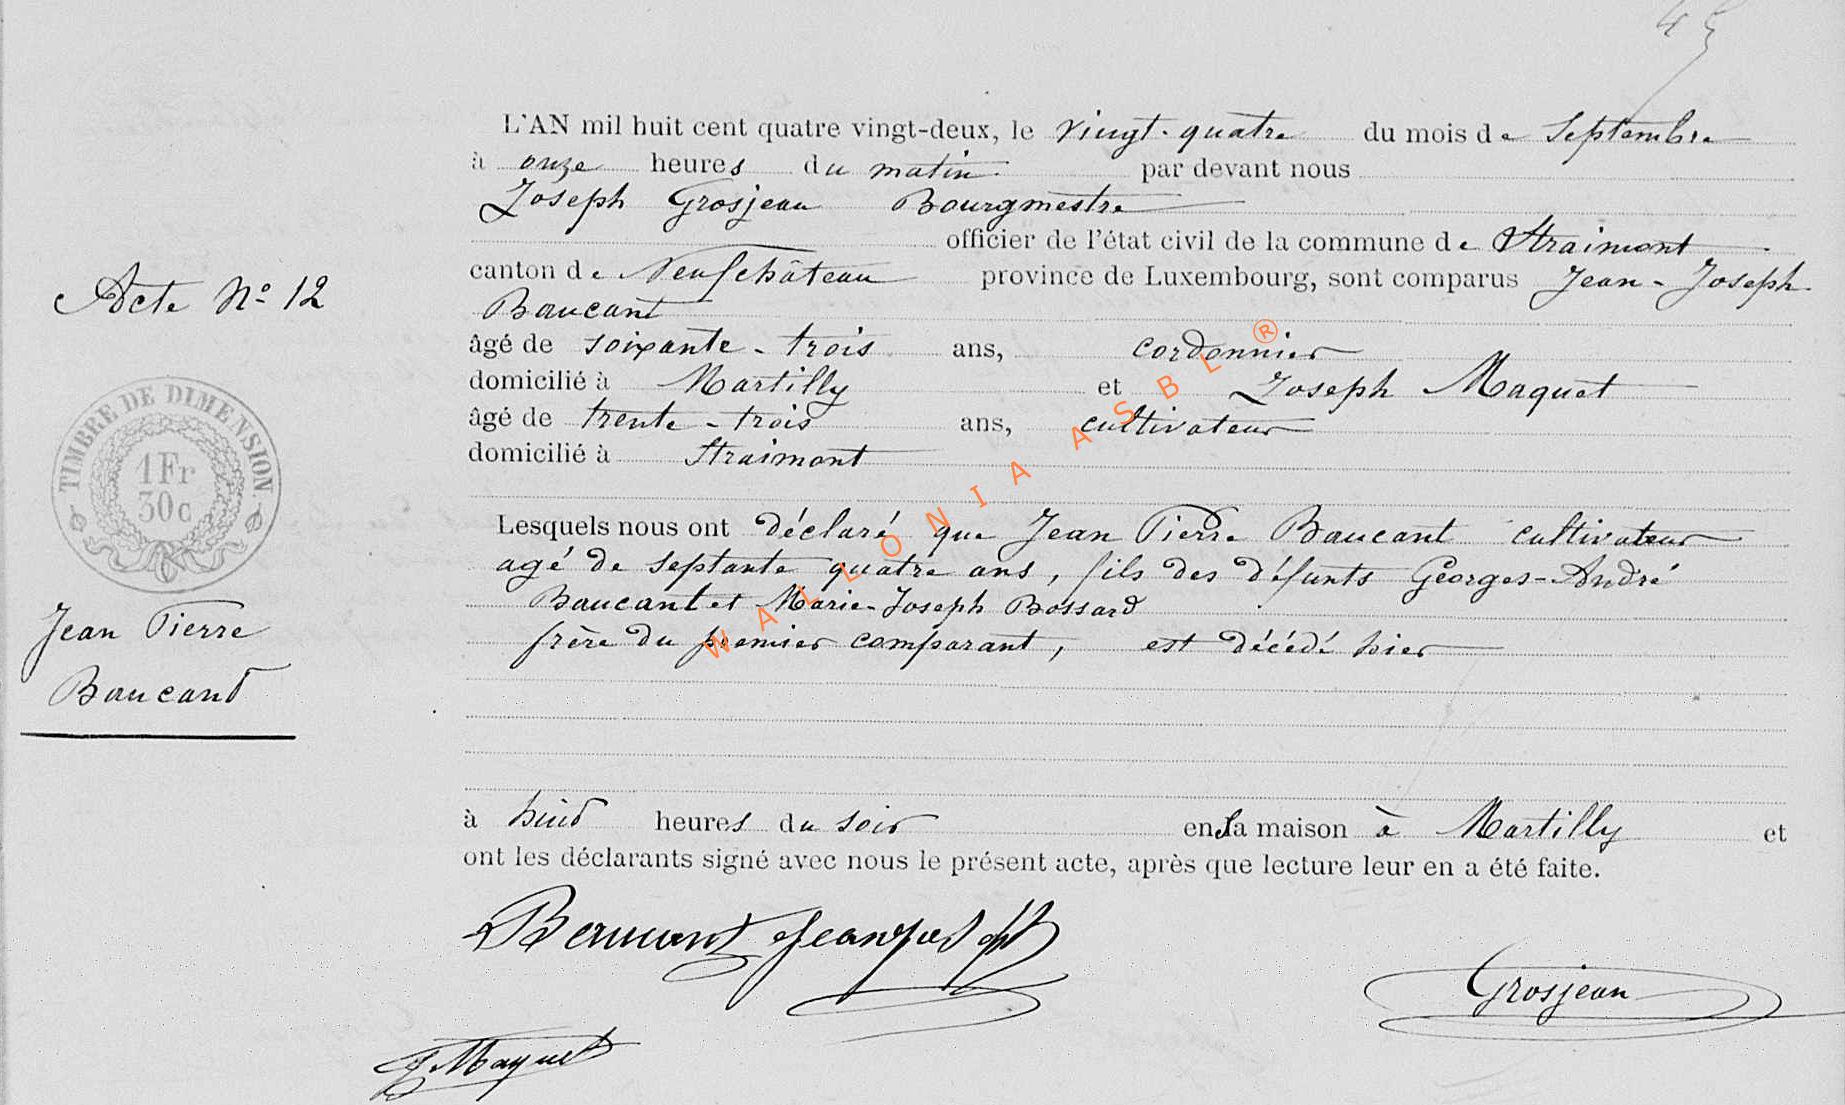 45
L'AN mil huit cent quatre vingt-deux, le vingt-quatre du mois de Septembre
à onze heures du matin par devant nous
Joseph Grosjean Bourgmestre
officier de l'état civil de la commune de Straimont
canton de Neufchâteau province de Luxembourg, sont comparus Jean-Joseph
Baucant
âgé de soixante-trois ans, cordonnier
domicilié à Martilly et Joseph Maquet
âgé de trente-trois ans, cultivateur
domicilié à Straimont
Acte No 12
TIMBRE DE DIMENSION
1 Fr
30 c
Jean Pierre
Baucant
Lesquels nous ont déclaré que Jean Pierre Baucant cultivateur
agé de septante quatre ans, fils des défunts Georges-André
Baucant et Marie-Joseph Bossard
frère du premier comparant, est décédé hier
à huit heures du soir en sa maison à Martilly et
ont les déclarants signé avec nous le présent acte, après que lecture leur en a été faite.
Jeanjoseph
Grosjean
J Maquet
WALLONIA ASBL ®